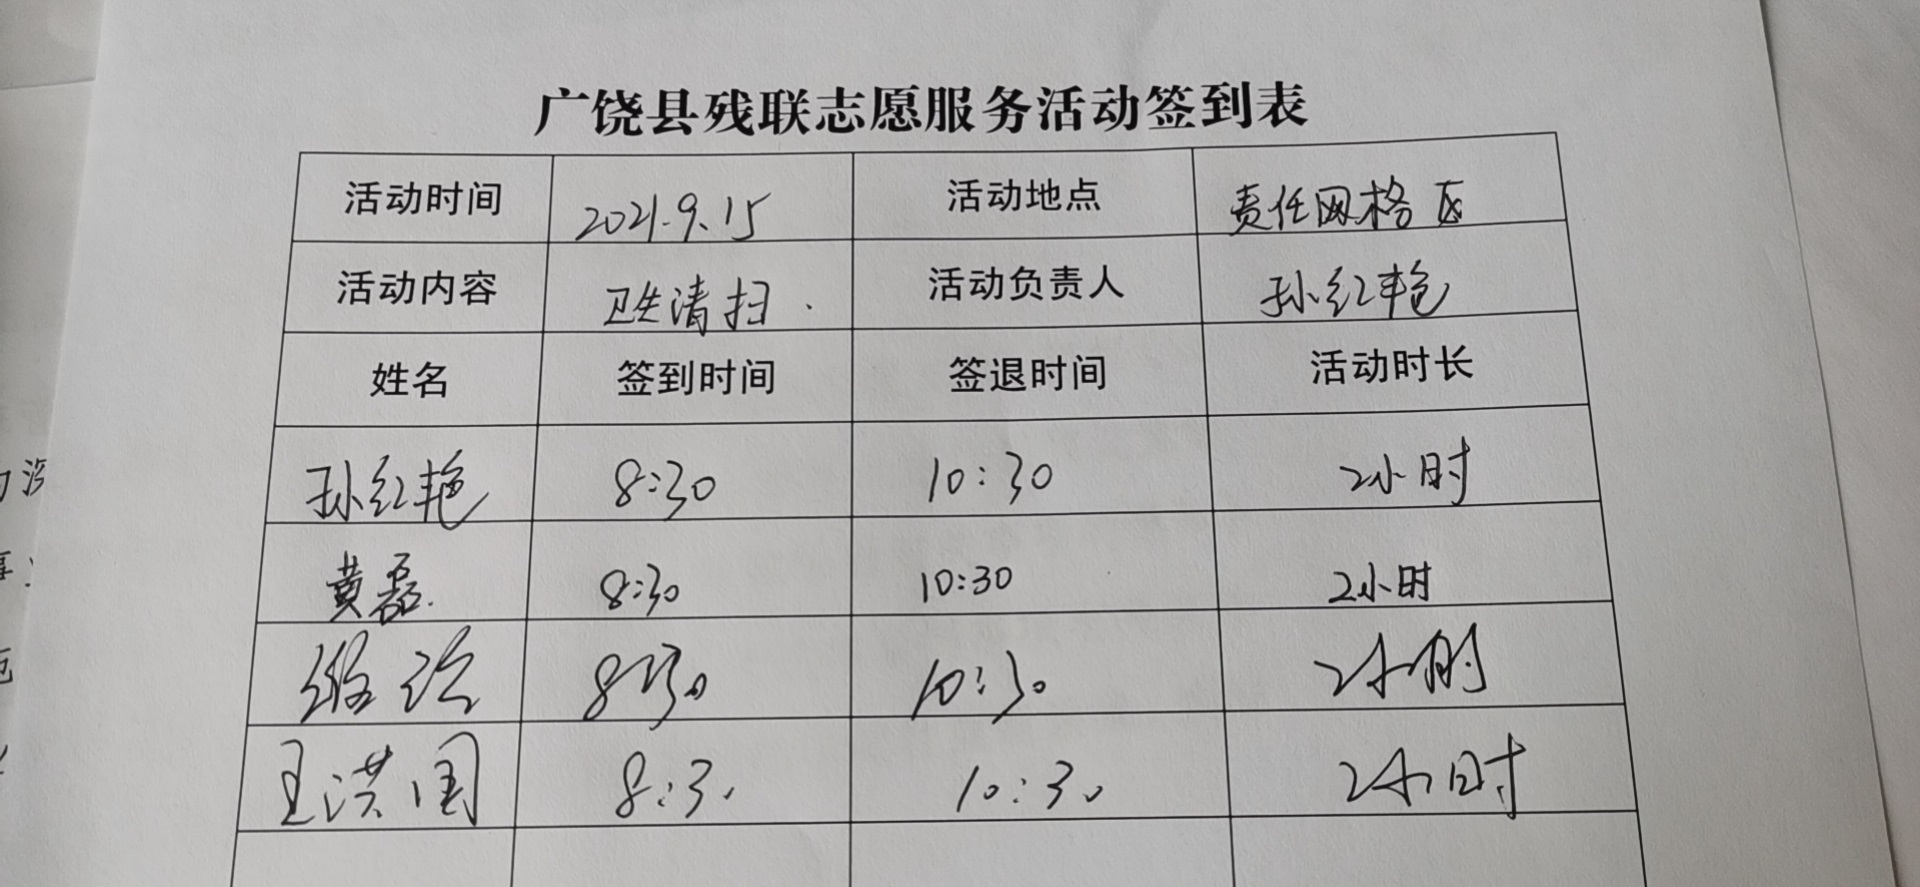 广饶县残联志愿服务活动签到表
活动时间 2021.9.15 活动地点 责任网格区
活动内容 卫生清扫. 活动负责人 孙红艳
姓名 签到时间 签退时间 活动时长
孙红艳 8:30 10:30 2小时
黄磊. 8:30 10:30 2小时
8:30 10:30 2小时
王洪国 8:30 10:30 2小时